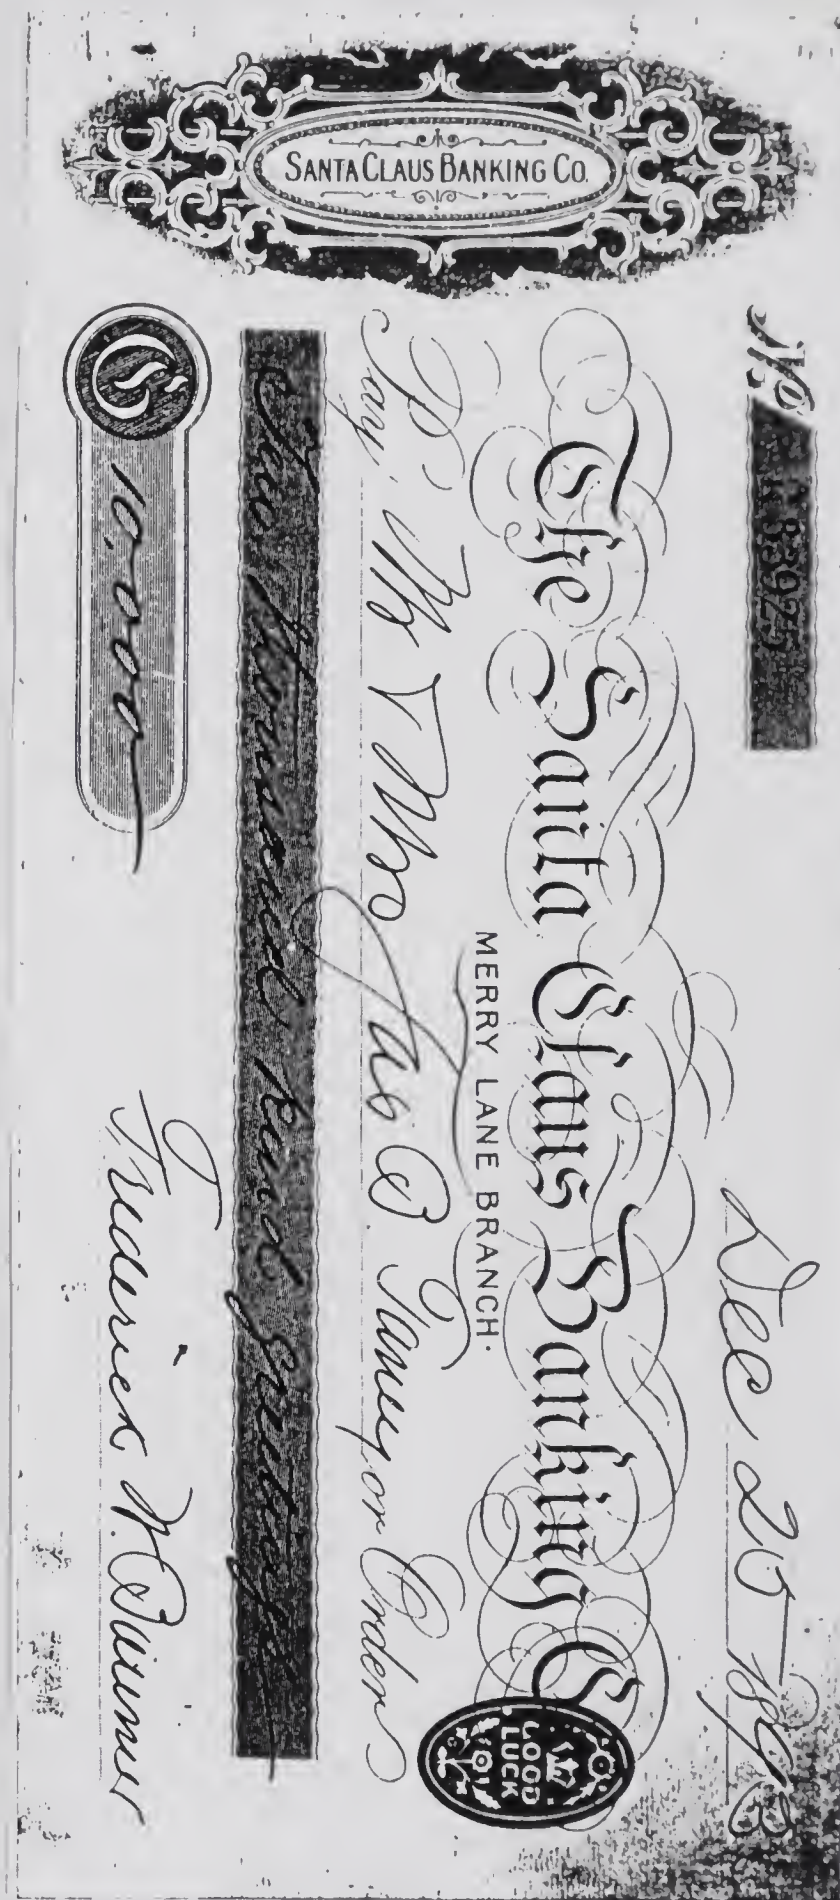 SANTA CLAUS BANKING CO.
No. 83925
Dec 25 1893
The Santa Claus Banking Co
MERRY LANE BRANCH.
GOOD LUCK
Pay Mr & Mrs Jas B Taney or Order
Ten thousand kind greetings
$ 10,000
Frederick W.